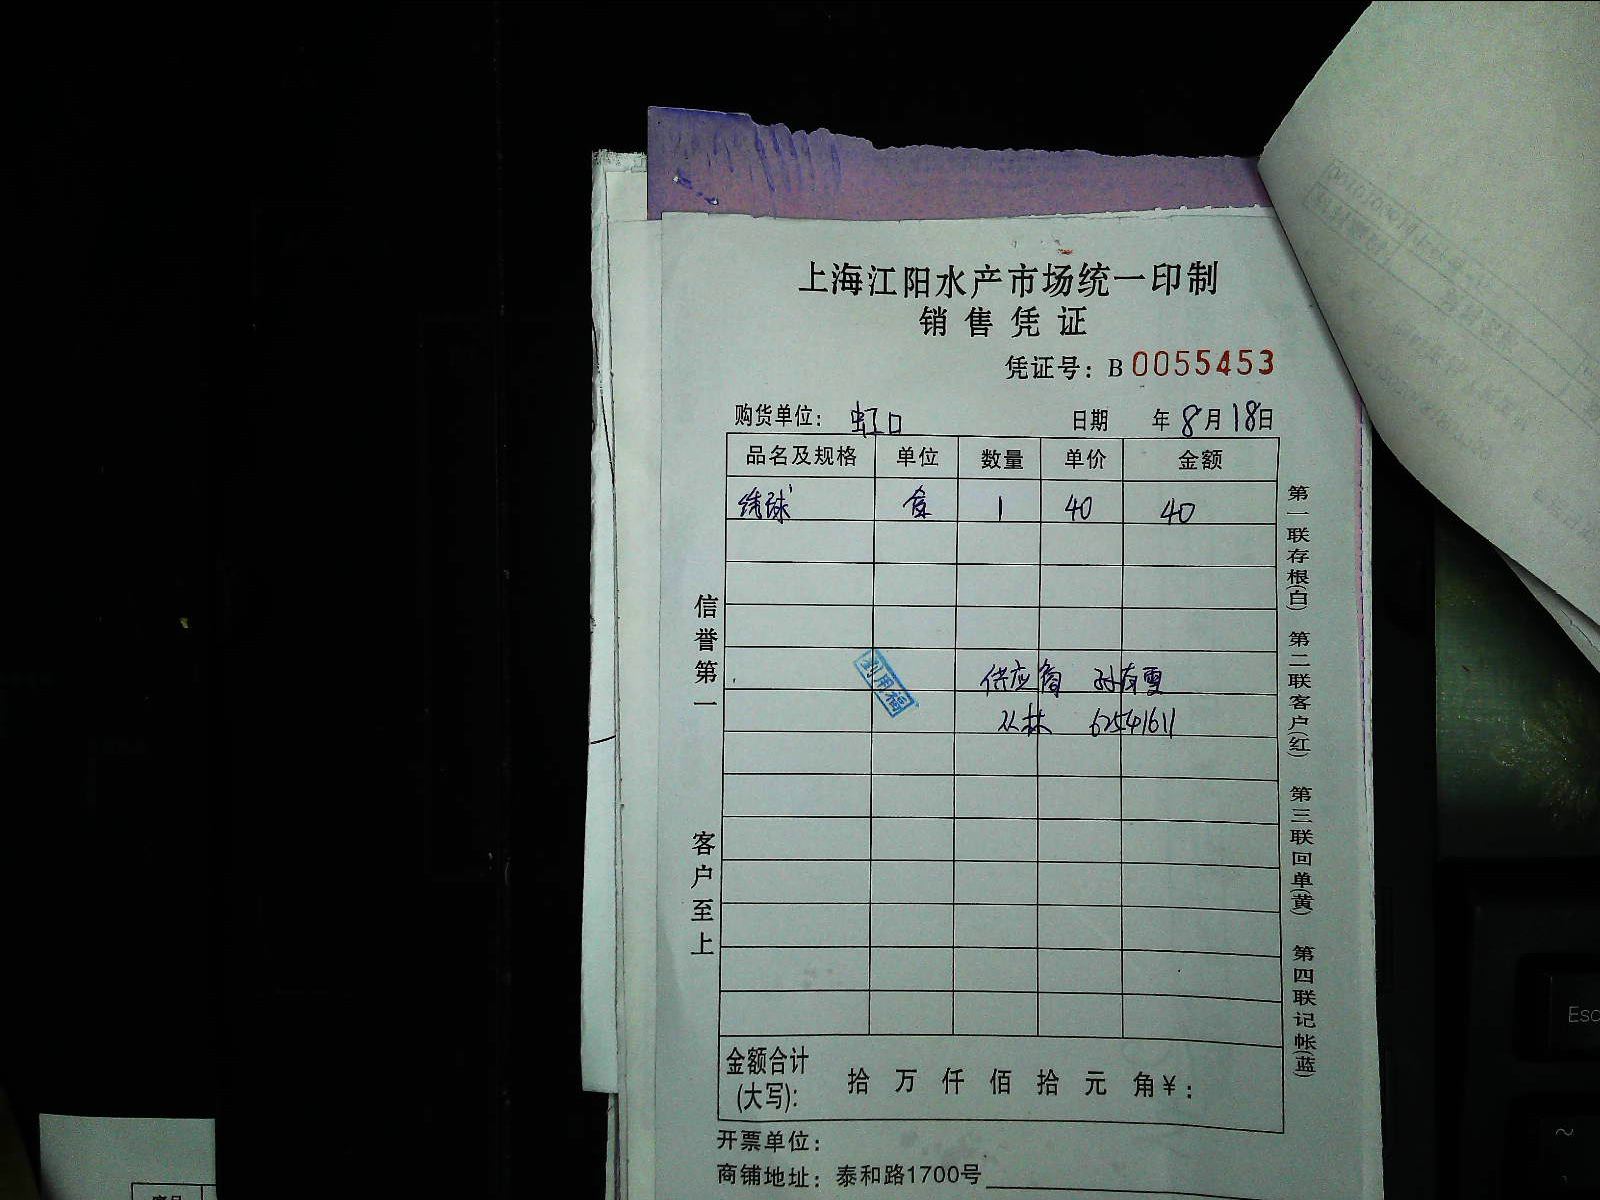 上海江阳水产市场统一印制
销售凭证
凭证号：B 0055453
购货单位：虹口 日期 年 8月18日
品名及规格 单位 数量 单价 金额
绣球 1 40 40
供应商 孙有雪
丛林 62541611
信誉第一
客户至上
第一联存根(白) 第二联客户(红) 第三联回单(黄) 第四联记帐(蓝)
金额合计(大写)： 拾 万 仟 佰 拾 元 角 ¥：
开票单位：
商铺地址：泰和路1700号
Esc
~